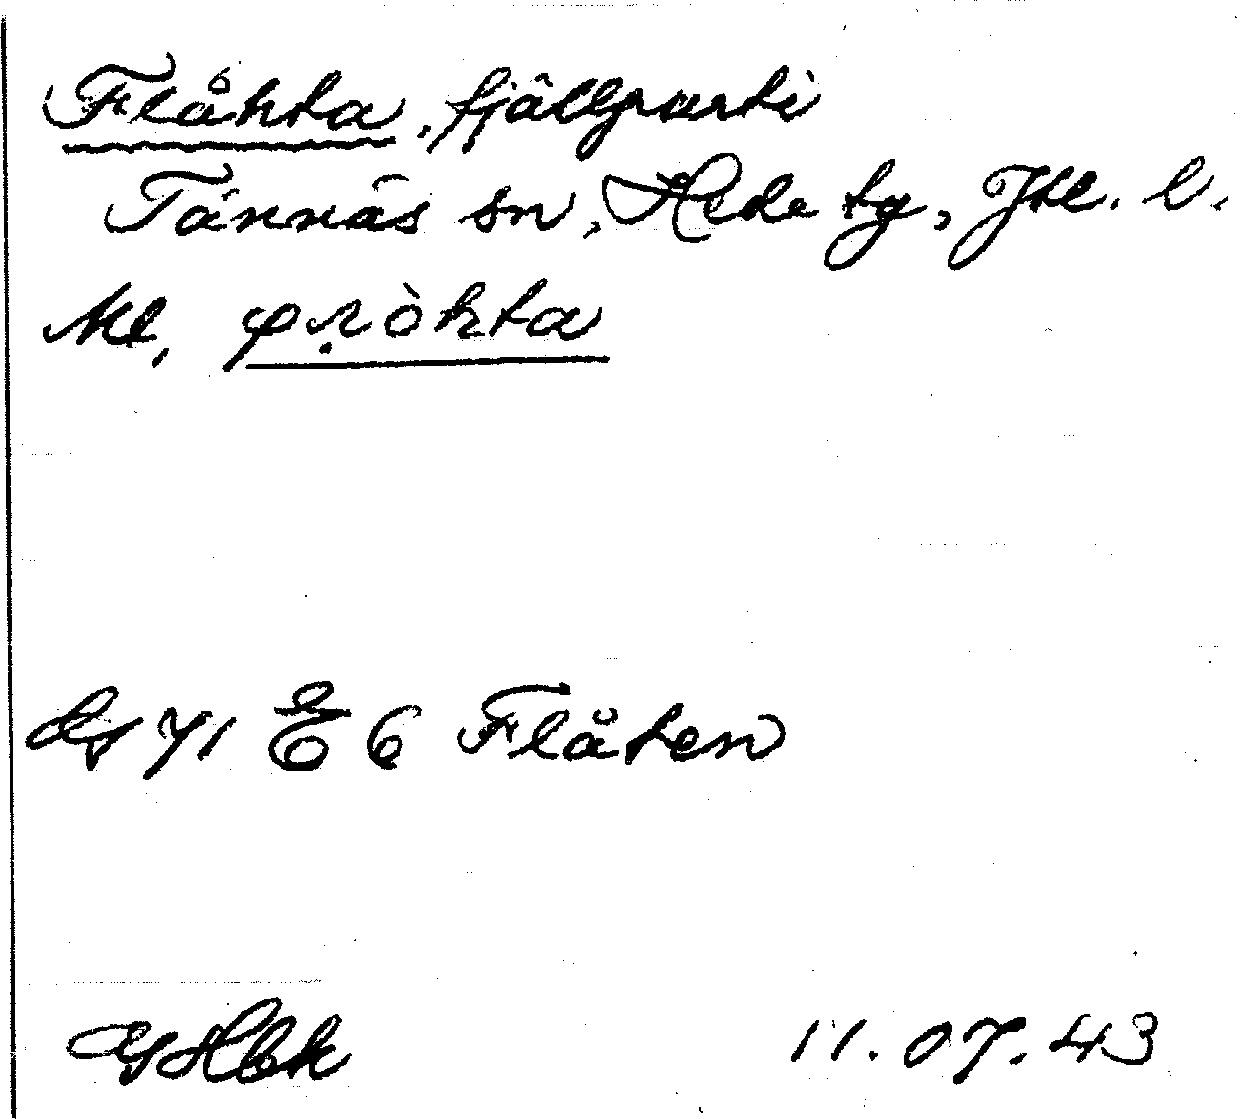 Flåhta, fjällparti
Tännäs sn, Hede tg, Jtl. l.
Kl,
Gs 71 E 6 Flåten
11.07.43